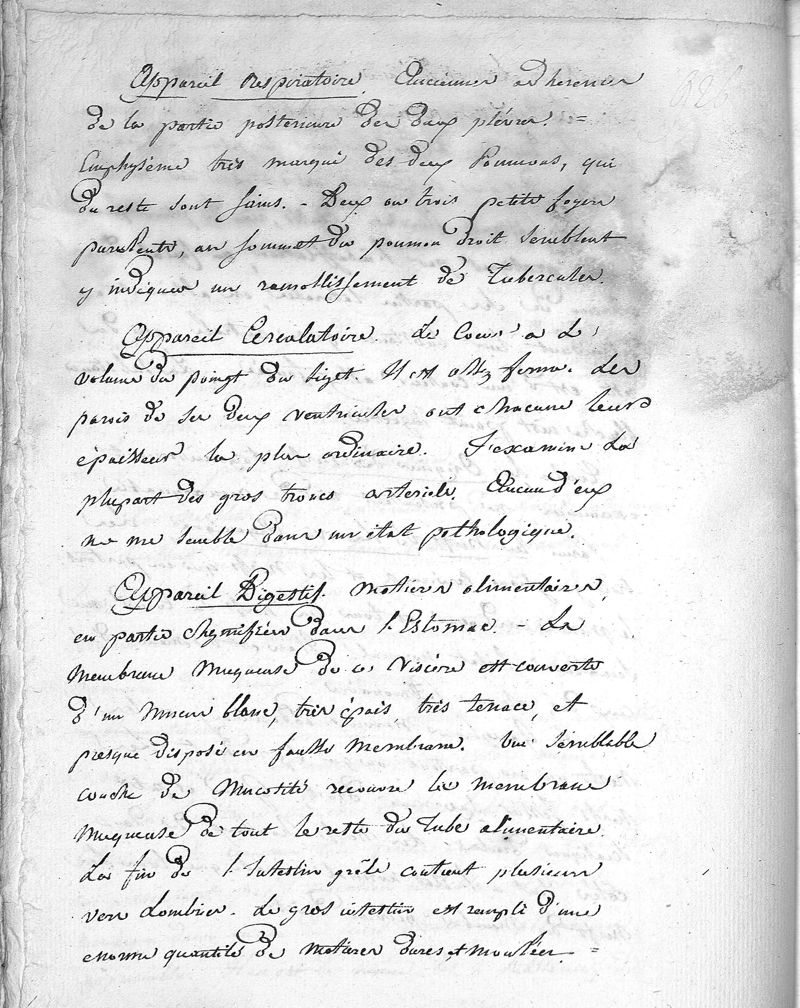 Appareil respiratoire. Anciennes adherences
de la partie posterieure des deux plévres. =
Emphysème très marqué des deux Poumons, qui
du reste sont sains. - Deux ou trois petits foyers
purulents, au sommet du poumon droit semblent
y indiquer un ramollissement de Tubercules.
Appareil Cerculatoire. Le Coeur a le
volume du poingt du sujet. Il est assez ferme. Les
parois de ses deux ventricules ont chacune leur
épaisseur la plus ordinaire. J'examine la
plupart des gros troncs arteriels. Aucun d'eux
ne me semble dans un état pathologique.
Appareil Digestif. Matieres alimentaires,
en partie chymifiées dans l'Estomac. - La
membrane muqueuse de ce viscère est couverte
d'un mucus blanc, très épais, très tenace, et
presque disposé en fausse membrane. Une semblable
couche de mucosité recouvre la membrane
muqueuse de tout le reste du tube alimentaire.
La fin de l'Intestin grêle contient plusieurs
vers Lombrics. Le gros intestin est rempli d'une
enorme quantité de matieres dures, et moulées. =